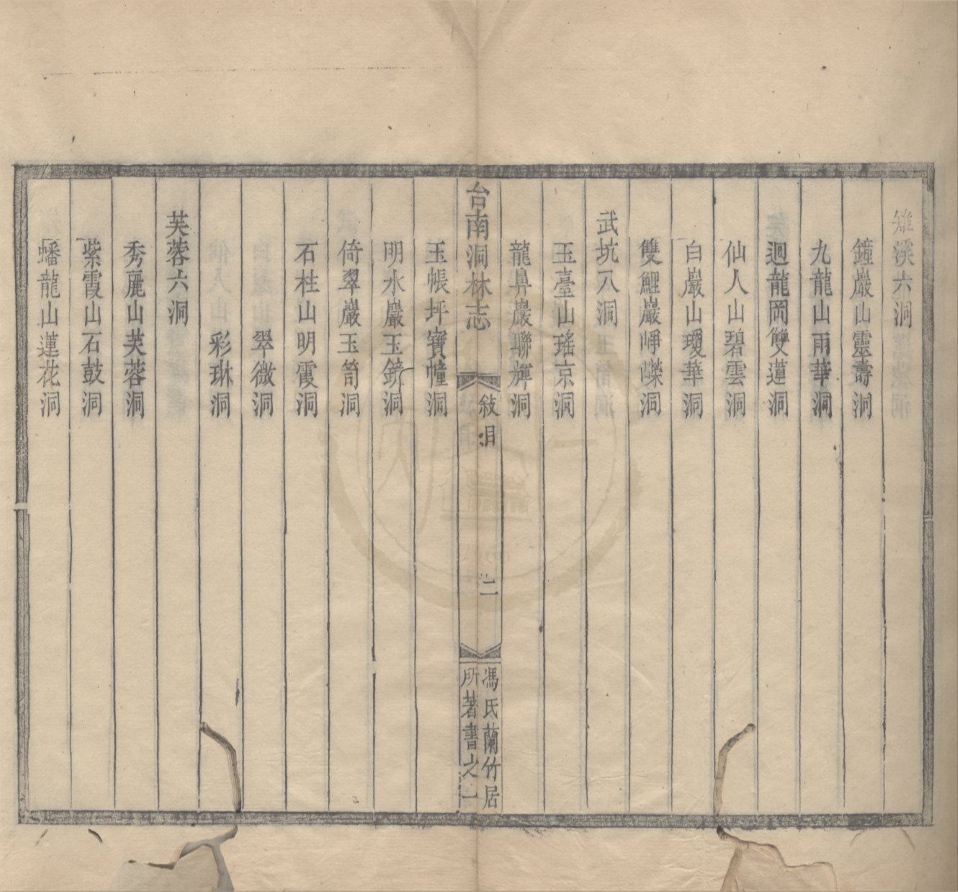 雉溪六洞
鐘巖山靈壽洞
九龍山雨華洞
迴龍岡雙蓮洞
仙人山碧雲洞
白巖山瓊華洞
雙鯉巖崢嶸洞
武坑八洞
玉臺山瑤京洞
龍鼻巖聯旗洞
台南洞林志
敍目
二
馮氏蘭竹居
所著書之一
玉帳坪寶幢洞
明水巖玉鏡洞
倚翠巖玉笥洞
石柱山明霞洞
翠微洞
彩琳洞
芙蓉六洞
秀麗山芙蓉洞
紫霞山石鼓洞
蟠龍山蓮花洞